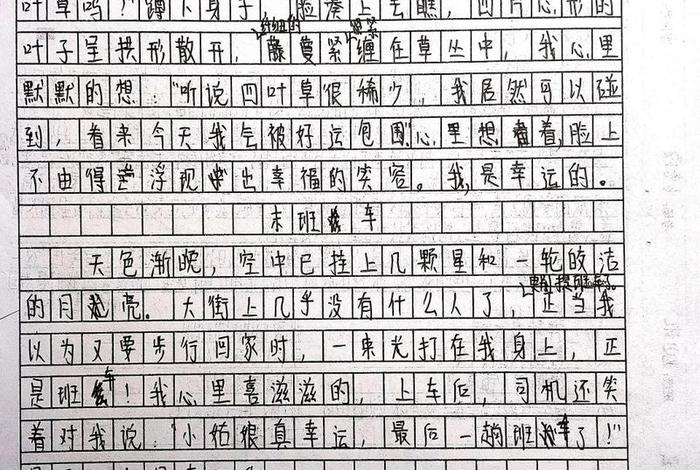 叶草吗？"蹲下身子，脸凑上去瞧，四片心形的
叶子呈拱形散开，纤细的藤蔓紧紧缠在草丛中，我心里
默默的想："听说四叶草很稀少，我居然可以碰
到，看来今天我会被好运包围"心里想着，脸上
不由得浮现出幸福的笑容。我，是幸运的。
末班车
天色渐晚，空中已挂上几颗星和一轮皎洁
的月亮。大街上几乎没有什么人了，正当我
以为又要步行回家时，一束光打在我身上，正
是班车！我心里喜滋滋的，上车后，司机还笑
着对我说："小姑娘真幸运，最后一趟班车了！"